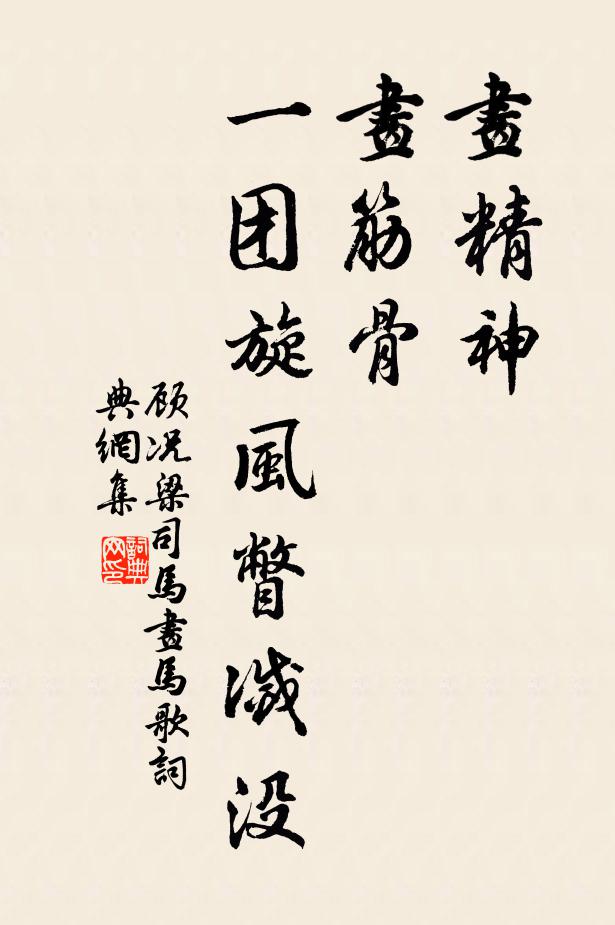 畫精神
畫筋骨
一团旋風瞥滅没
顾况梁司馬畫馬歌詞
典網集
詞典网印